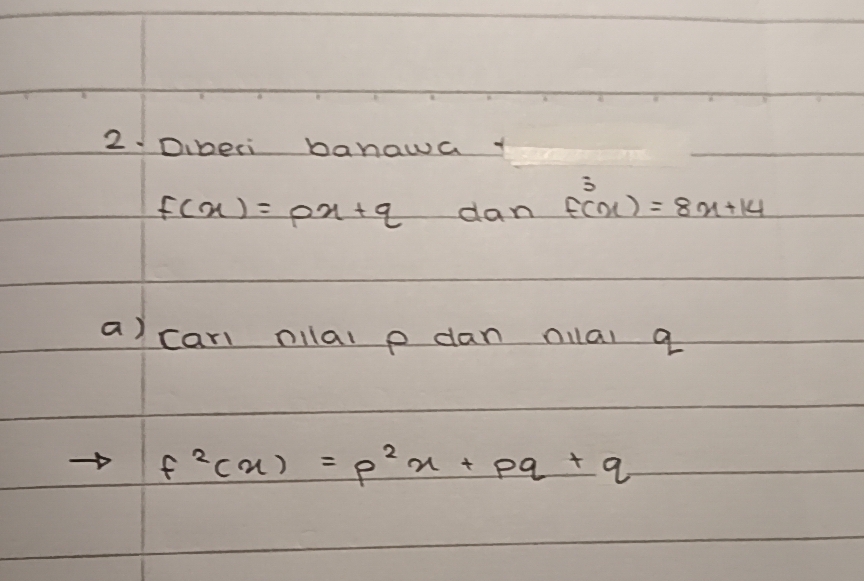 2. Diberi bahawa
f(x) = px + q dan f³(x) = 8x + 14
a) Cari nilai p dan nilai q
→ f²(x) = p²x + pq + q